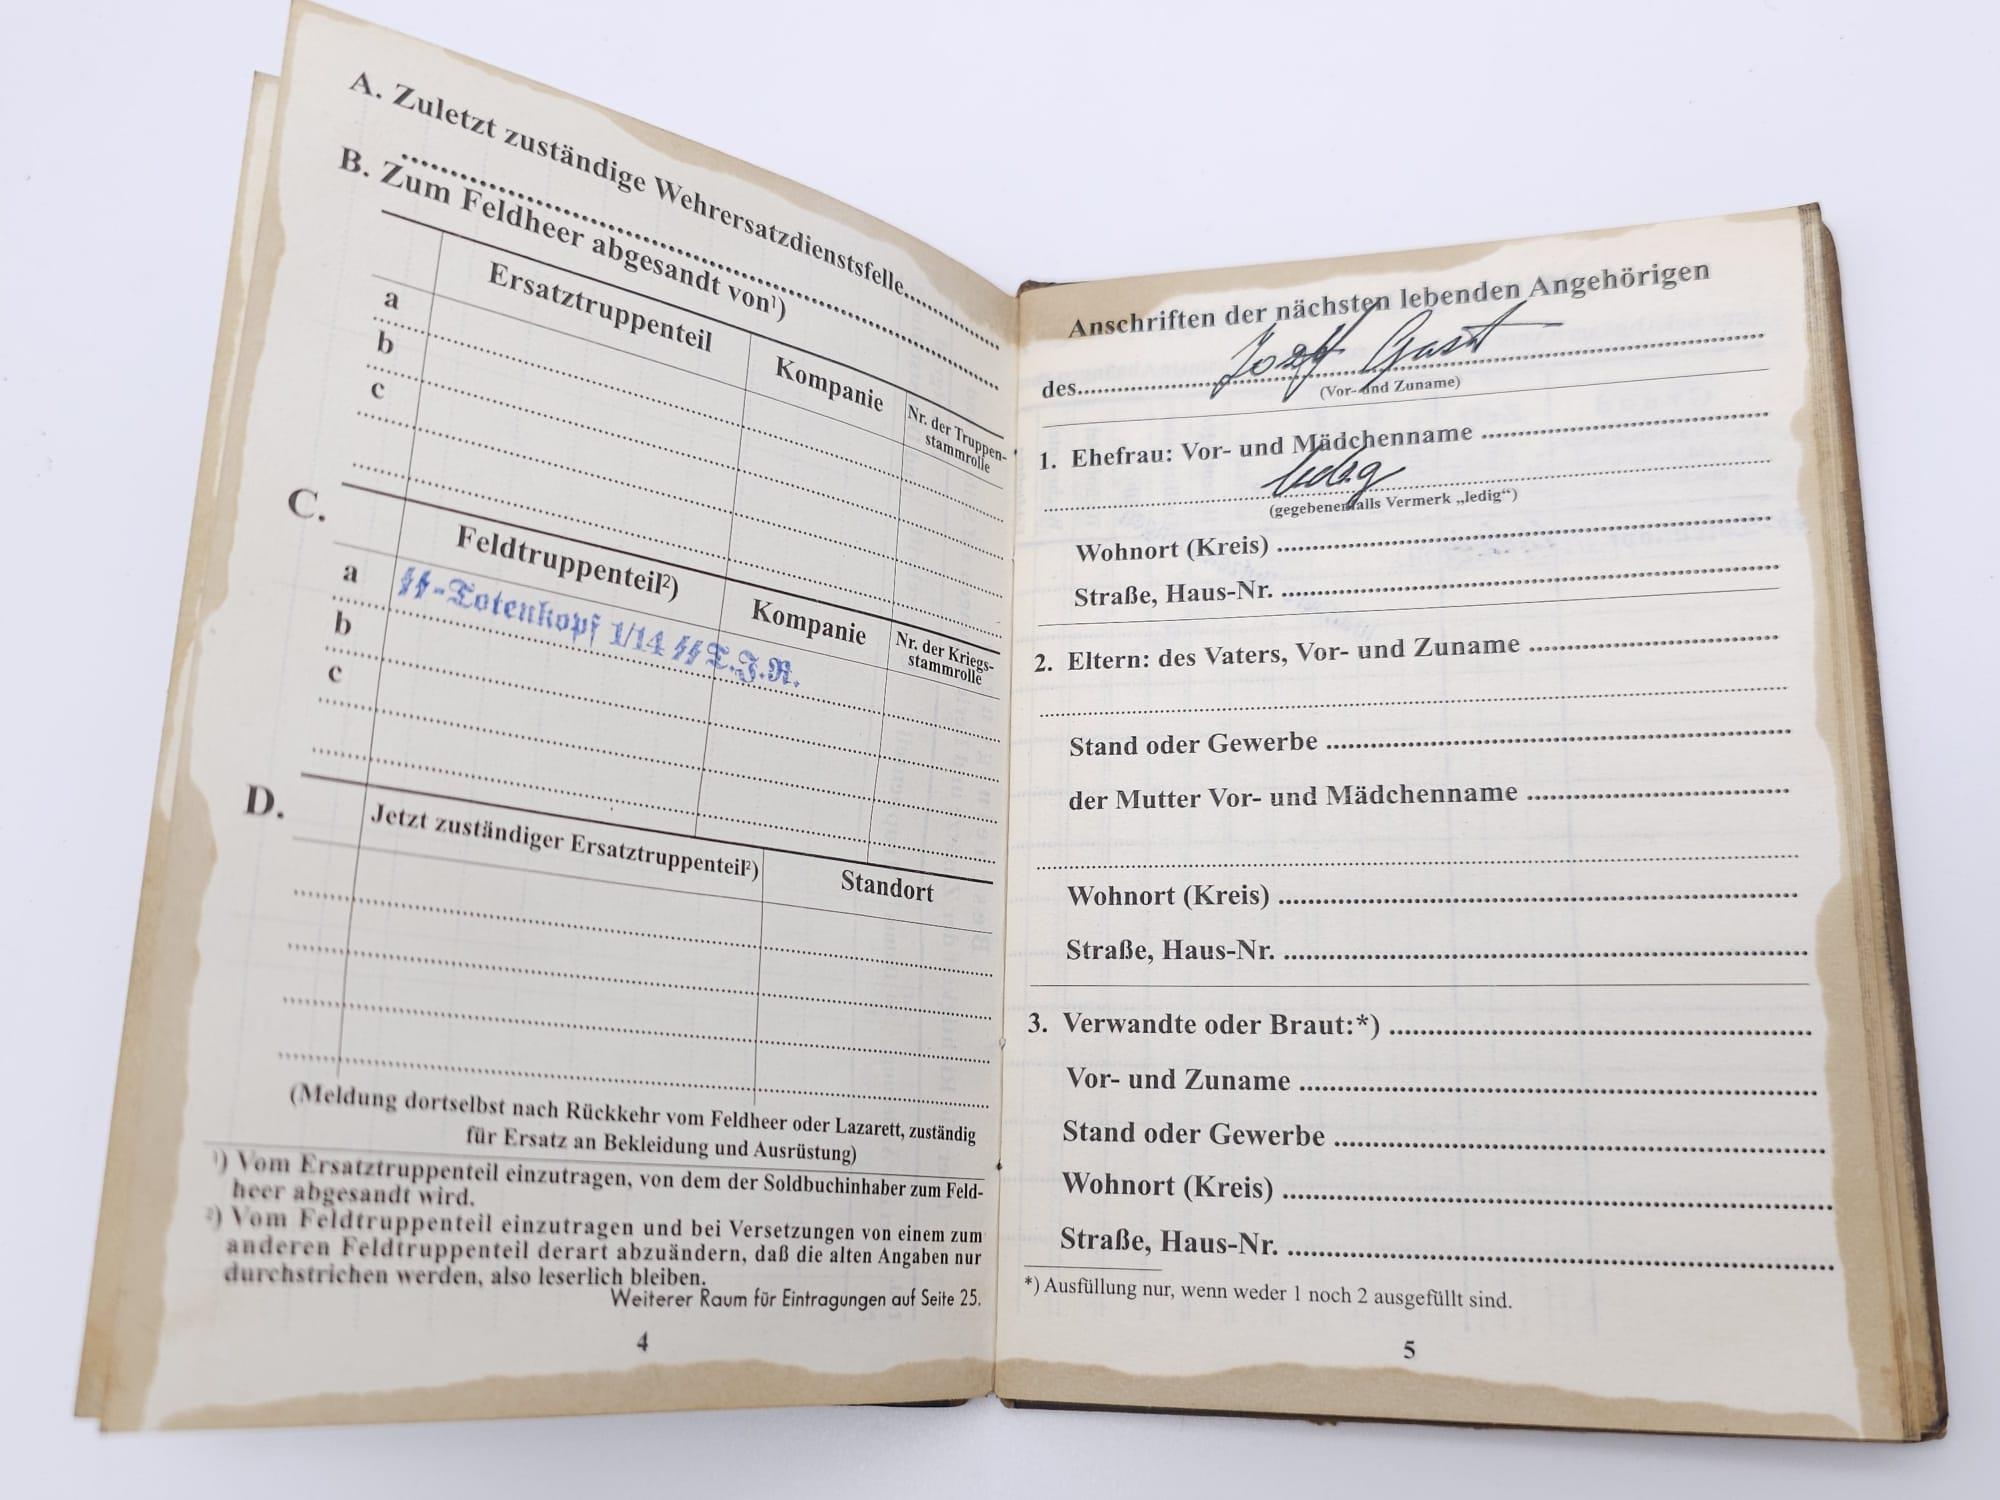 A. Zuletzt zuständige Wehrersatzdienstsfelle
B. Zum Feldheer abgesandt von¹)
Ersatztruppenteil Kompanie Nr. der Truppen-
stammrolle
a
b
c
C.
Feldtruppenteil²) Kompanie Nr. der Kriegs-
stammrolle
a ᛋᛋ-Totenkopf 1/14 ᛋᛋ T.J.R.
b
c
D.
Jetzt zuständiger Ersatztruppenteil²) Standort
(Meldung dortselbst nach Rückkehr vom Feldheer oder Lazarett, zuständig
für Ersatz an Bekleidung und Ausrüstung)
¹) Vom Ersatztruppenteil einzutragen, von dem der Soldbuchinhaber zum Feld-
heer abgesandt wird.
²) Vom Feldtruppenteil einzutragen und bei Versetzungen von einem zum
anderen Feldtruppenteil derart abzuändern, daß die alten Angaben nur
durchstrichen werden, also leserlich bleiben.
Weiterer Raum für Eintragungen auf Seite 25.
4
Anschriften der nächsten lebenden Angehörigen
des Josef Gast
(Vor- und Zuname)
1. Ehefrau: Vor- und Mädchenname
ledig
(gegebenenfalls Vermerk „ledig“)
Wohnort (Kreis)
Straße, Haus-Nr.
2. Eltern: des Vaters, Vor- und Zuname
Stand oder Gewerbe
der Mutter Vor- und Mädchenname
Wohnort (Kreis)
Straße, Haus-Nr.
3. Verwandte oder Braut:*)
Vor- und Zuname
Stand oder Gewerbe
Wohnort (Kreis)
Straße, Haus-Nr.
*) Ausfüllung nur, wenn weder 1 noch 2 ausgefüllt sind.
5